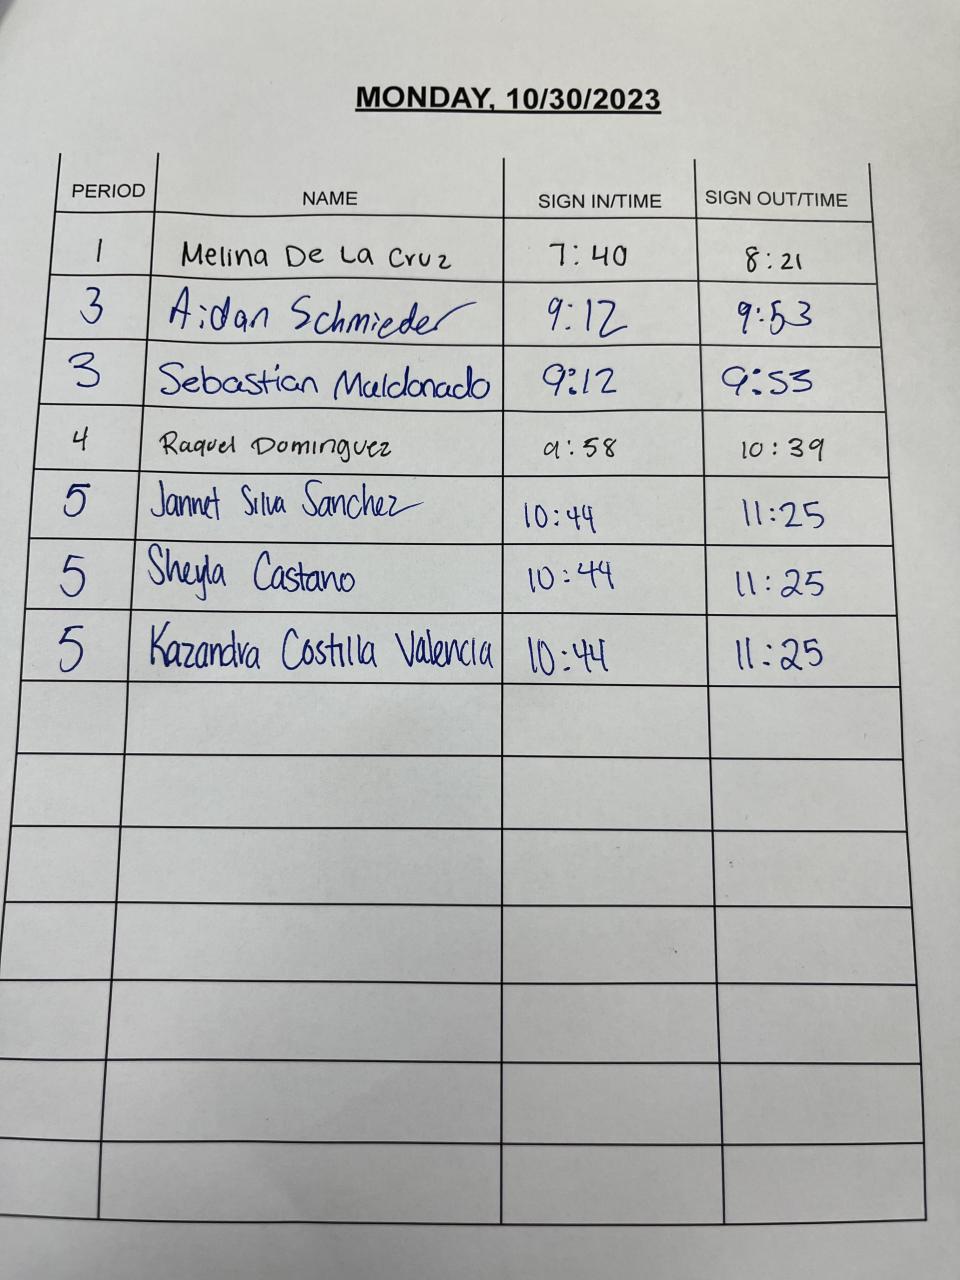 MONDAY, 10/30/2023
PERIOD NAME SIGN IN/TIME SIGN OUT/TIME
1 Melina De La Cruz 7:40 8:21
3 Aidan Schmieder 9:12 9:53
3 Sebastian Maldonado 9:12 9:53
4 Raquel Dominguez 9:58 10:39
5 Jannet Silva Sanchez 10:44 11:25
5 Sheyla Castano 10:44 11:25
5 Kazandra Costilla Valencia 10:44 11:25